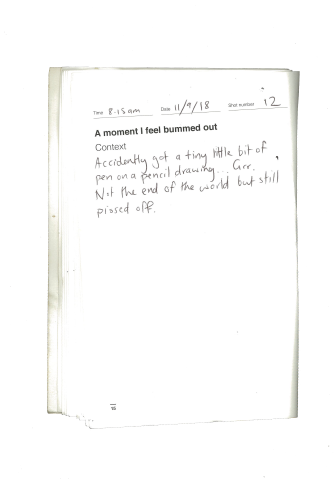 Time 8.15am Date 11/9/18 Shot number 12
A moment I feel bummed out
Context
Accidently got a tiny little bit of
pen on a pencil drawing... Grr.
Not the end of the world but still
pissed off.